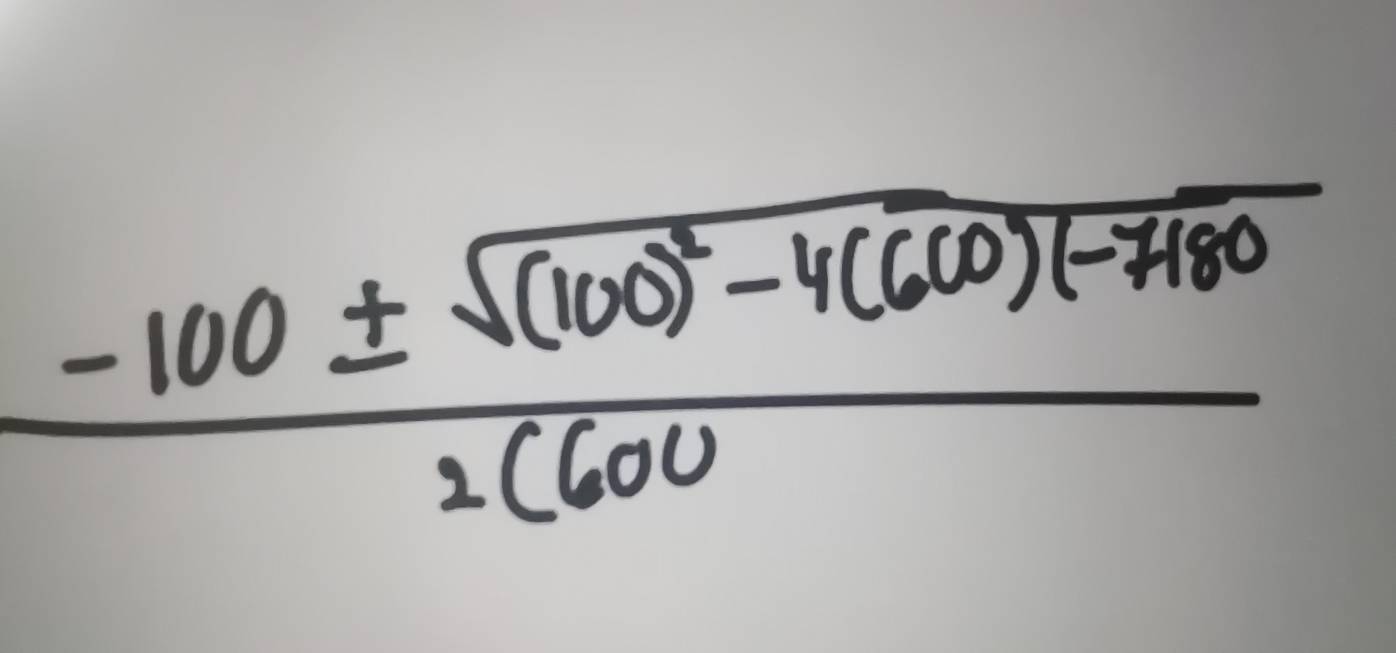 -100 ± √(100)² - 4(600)(-7180
2(600